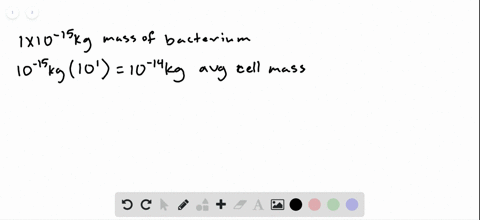 1×10⁻¹⁵kg mass of bacterium
10⁻¹⁵kg (10¹) = 10⁻¹⁴kg avg cell mass